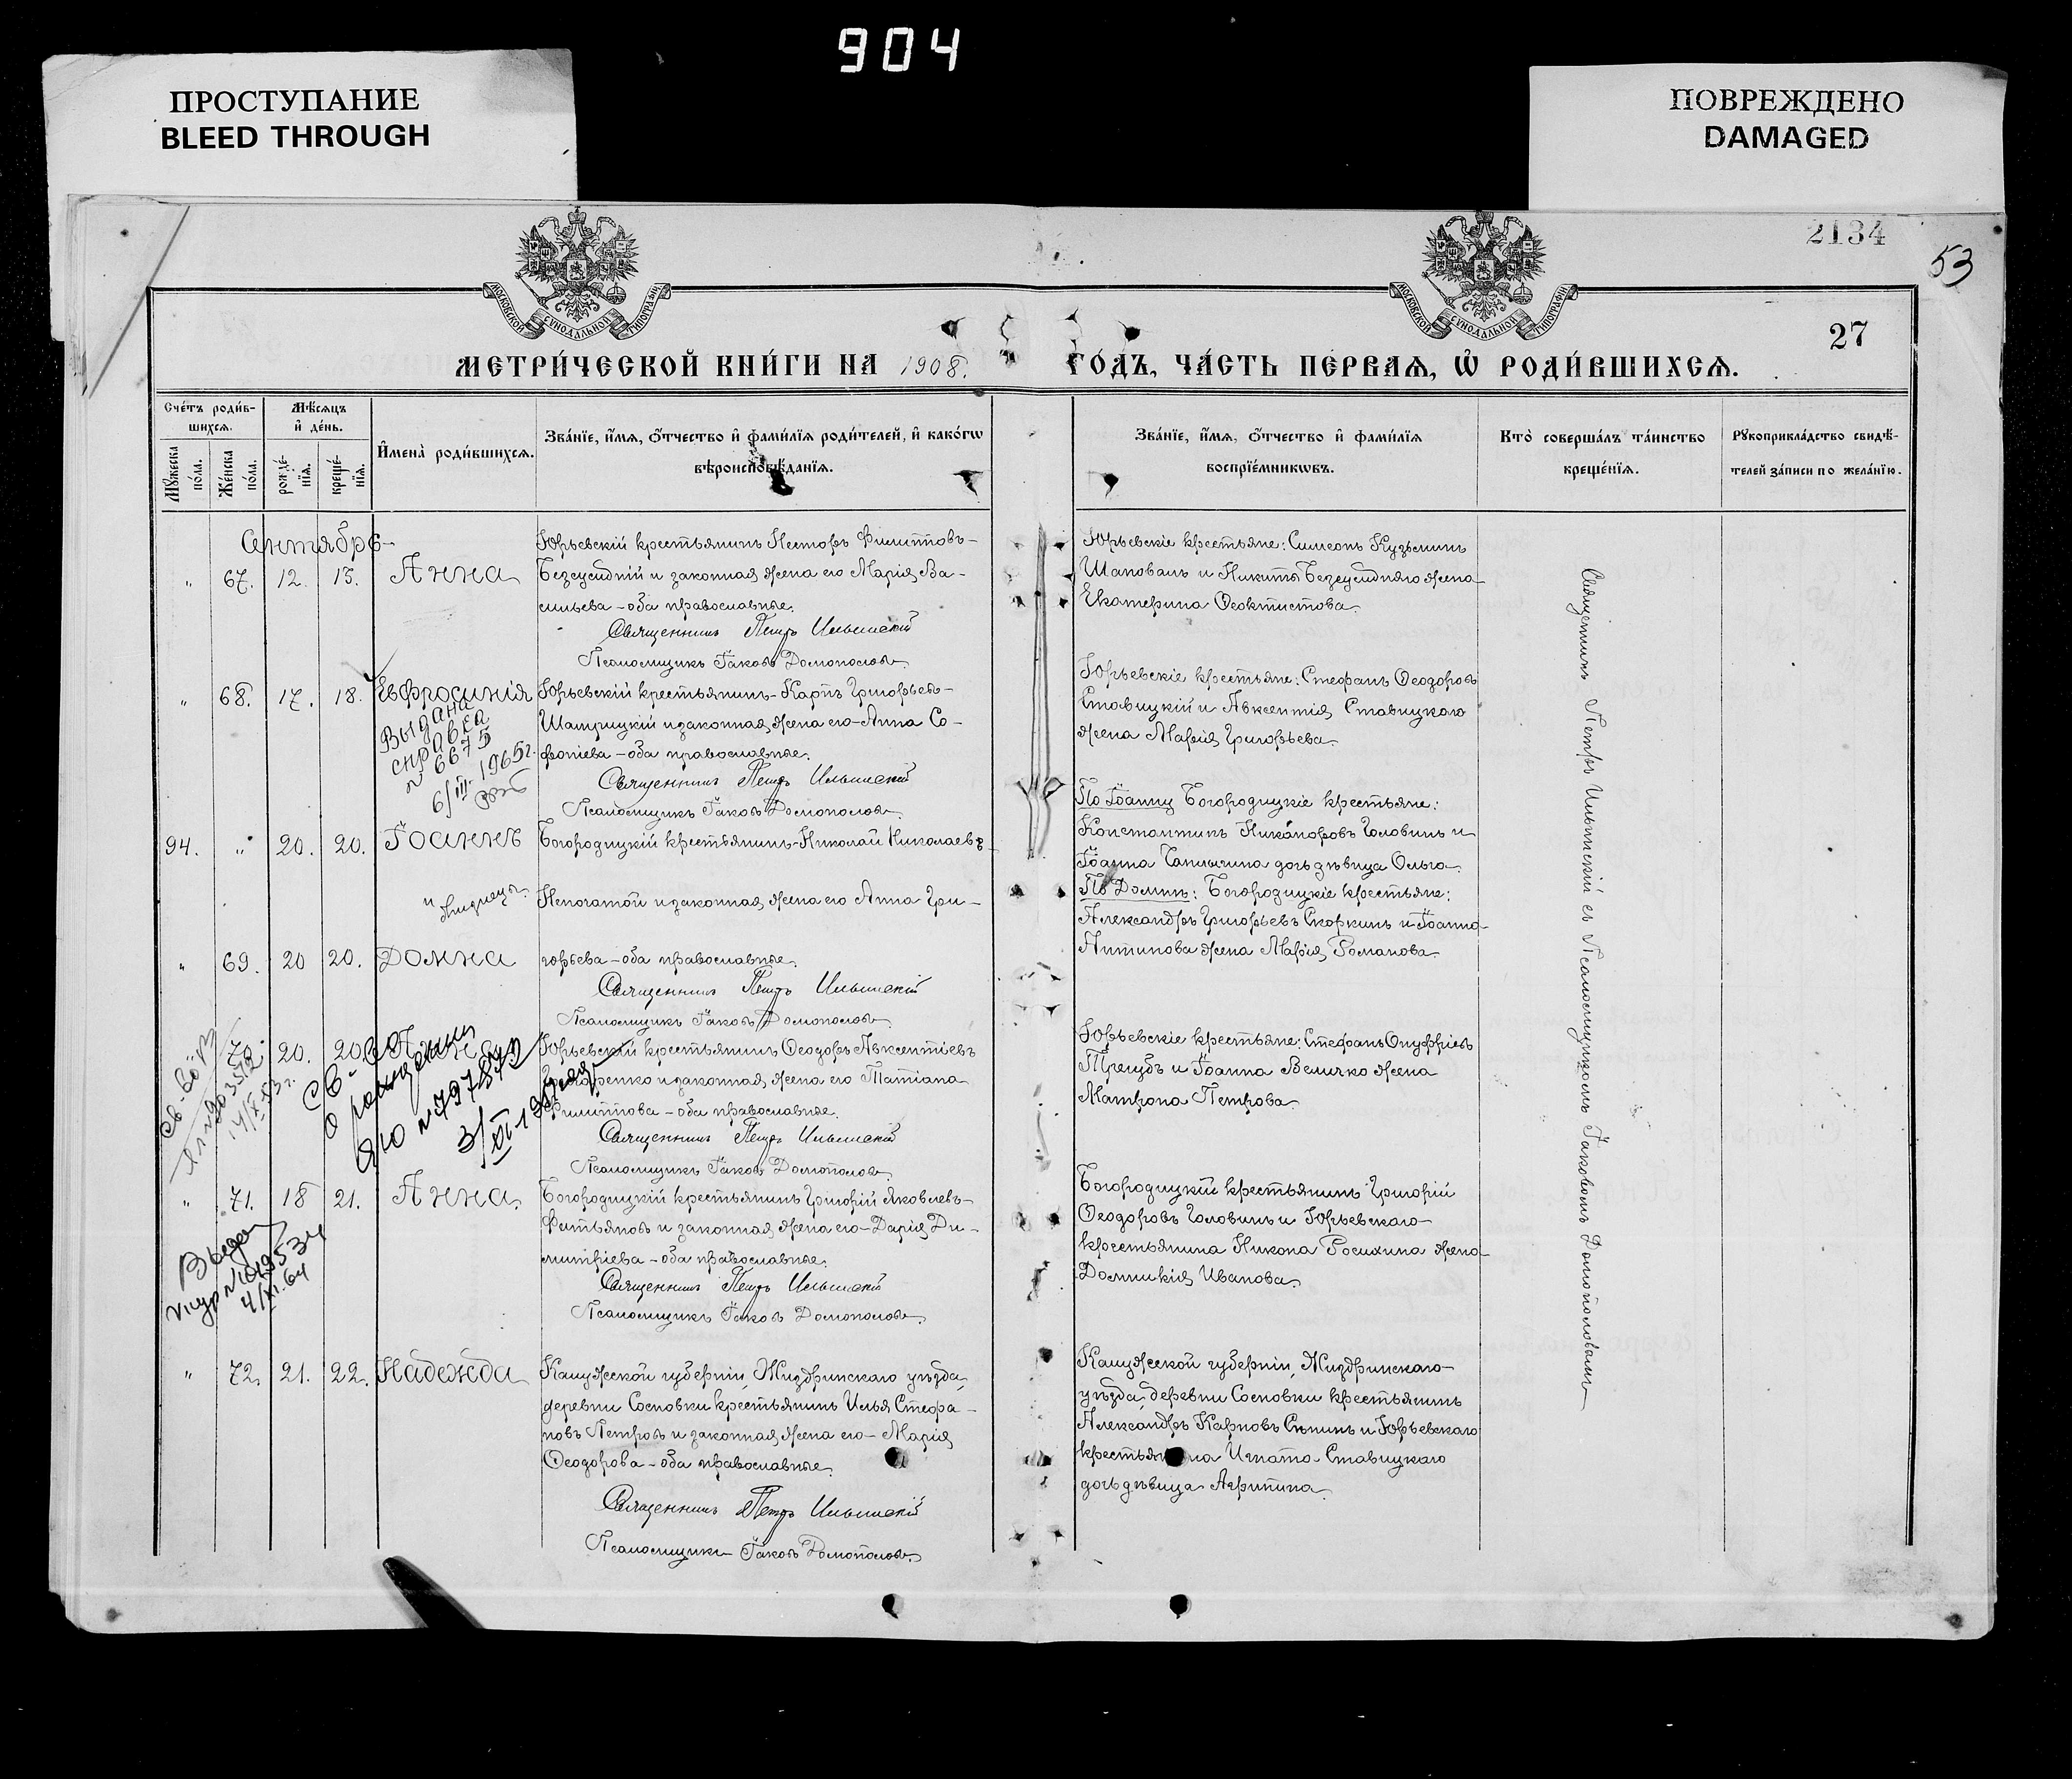 904
ПРОСТУПАНИЕ
BLEED THROUGH
ПОВРЕЖДЕНО
DAMAGED
2134
53
27
МОСКОВСКОЙ СѴНОДАЛЬНОЙ ТИПОГРАФІИ
МОСКОВСКОЙ СѴНОДАЛЬНОЙ ТИПОГРАФІИ
МЕТРИ́ЧЕСКОЙ КНИ́ГИ НА 1908. ГО́ДЪ, ЧА́СТЬ ПЕ́РВАѦ, Ѡ҆ РОДИ́ВШИХСѦ.
Сче́тъ роди́в-
шихсѧ.
Мꙋ́жеска по́ла.
Же́нска по́ла.
Мѣ́сѧцъ
и҆ де́нь.
рожде́-
нїѧ.
креще́-
нїѧ.
И҆мена̀ роди́вшихсѧ.
Зва́нїе, и҆́мѧ, ѻ҆́тчество и҆ фами́лїѧ роди́телей, и҆ како́гѡ
вѣроисповѣ́данїѧ.
Зва́нїе, и҆́мѧ, ѻ҆́тчество и҆ фами́лїѧ
воспрїе́мникѡвъ.
Кто̀ соверша́лъ та́инство
креще́нїѧ.
Рꙋкоприкла́дство свидѣ́-
телей за́писи по жела́нїю.
Сентябрь
" 67. 12. 13. Анна
Юрьевскій крестьянинъ Несторъ Филипповъ
Безсуѣдній и законная жена его Марія Ва-
сильева – оба православные.
Священникъ Петръ Ильинскій
Псаломщикъ Іаковъ Домополовъ
Юрьевскіе крестьяне: Симеонъ Кузьминъ
Шаповалъ и Никиты жена
Екатерина Ѳеоктистова.
" 68. 17. 18. Евфросинія
Выдана
справка
№ 6675
6/III 1965г.
Юрьевскій крестьянинъ Карпъ Григорьевъ
и законная жена его Анна Со-
фоніева – оба православные.
Священникъ Петръ Ильинскій
Псаломщикъ Іаковъ Домополовъ
Юрьевскіе крестьяне: Стефанъ Ѳеодоровъ
Ставицкій и Авксентія Ставицкаго
жена Марія Григорьева.
94. " 20. 20. Іоаннъ
и близнецы
" 69. 20 20. Домна
Богородицкій крестьянинъ Николай Николаевъ
Непочатой и законная жена его Анна Гри-
горьева – оба православные.
Священникъ Петръ Ильинскій
Псаломщикъ Іаковъ Домополовъ
По Іоанну Богородицкіе крестьяне:
Константинъ Никаноровъ Головинъ и
Іоанна дочь дѣвица Ольга.
По Домнѣ: Богородицкіе крестьяне:
Александръ Григорьевъ Скоркинъ и Іоанна
Антипова жена Марія Романова.
70. 20. 20.
Св-во
о рождении
ЯЮ № 797872
Юрьевскій крестьянинъ Ѳеодоръ Авксентіевъ
и законная жена его Татіана
Филиппова – оба православные.
Священникъ Петръ Ильинскій
Псаломщикъ Іаковъ Домополовъ
Юрьевскіе крестьяне: Стефанъ Онуфріевъ
Трегубъ и Іоанна Величко жена
Матрона Петрова.
" 71. 18 21. Анна
4/XI.64
Богородицкій крестьянинъ Григорій Яковлевъ
Фетьяновъ и законная жена его Дарія Ди-
митріева – оба православные.
Священникъ Петръ Ильинскій
Псаломщикъ Іаковъ Домополовъ
Богородицкій крестьянинъ Григорій
Ѳеодоровъ Головинъ и Юрьевскаго
крестьянина Никона жена
Домникія Иванова.
" 72. 21. 22. Надежда
Калужской губерніи, Жиздринскаго уѣзда,
деревни Сосновки крестьянинъ Илья Стефа-
новъ Петровъ и законная жена его Марія
Ѳеодорова – оба православные.
Священникъ Петръ Ильинскій
Псаломщикъ Іаковъ Домополовъ
Калужской губерніи, Жиздринскаго
уѣзда, деревни Сосновки крестьянинъ
Александръ Карповъ и Юрьевскаго
крестьянина Игната Ставицкаго
дочь дѣвица Агрипина.
Священникъ Петръ Ильинскій съ Псаломщикомъ Іаковомъ Домополовымъ